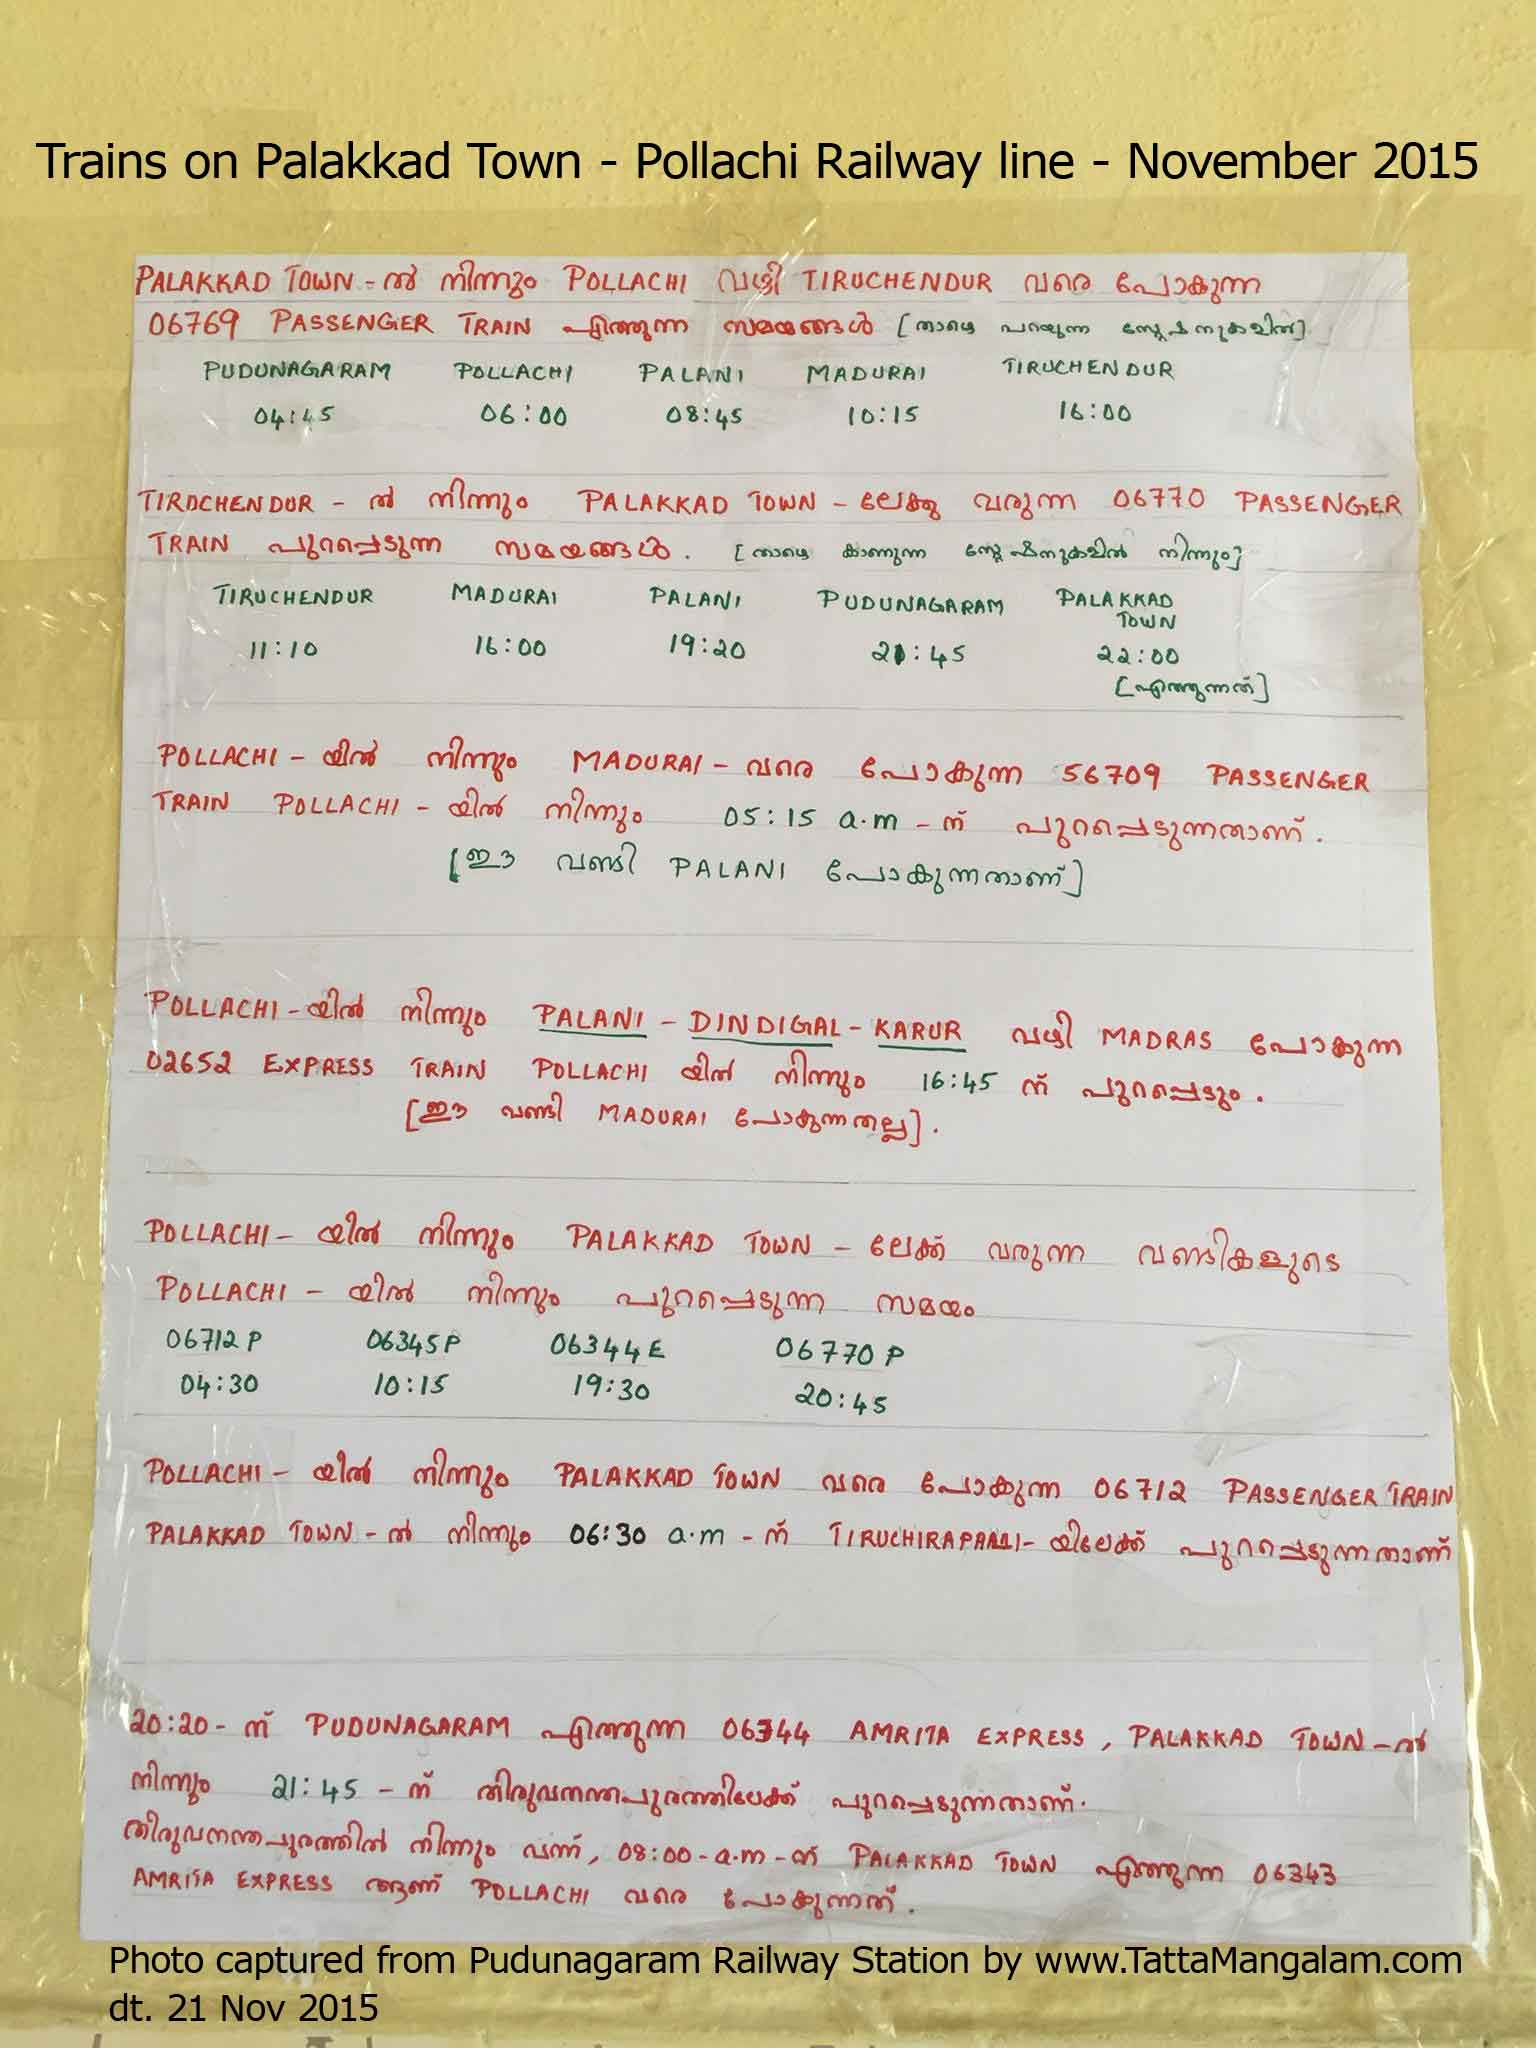 Trains on Palakkad Town - Pollachi Railway line - November 2015
PALAKKAD TOWN-ൽ നിന്നും POLLACHI വഴി TIRUCHENDUR വരെ പോകുന്ന
06769 PASSENGER TRAIN എത്തുന്ന സമയങ്ങൾ [താഴെ പറയുന്ന സ്റ്റേഷനുകളിൽ]
PUDUNAGARAM POLLACHI PALANI MADURAI TIRUCHENDUR
04:45 06:00 08:45 10:15 16:00
TIRUCHENDUR - ൽ നിന്നും PALAKKAD TOWN - ലേക്കു വരുന്ന 06770 PASSENGER
TRAIN പുറപ്പെടുന്ന സമയങ്ങൾ. [താഴെ കാണുന്ന സ്റ്റേഷനുകളിൽ നിന്നും]
TIRUCHENDUR MADURAI PALANI PUDUNAGARAM PALAKKAD
TOWN
11:10 16:00 19:20 21:45 22:00
[എത്തുന്നത്]
POLLACHI - യിൽ നിന്നും MADURAI - വരെ പോകുന്ന 56709 PASSENGER
TRAIN POLLACHI - യിൽ നിന്നും 05:15 a.m - ന് പുറപ്പെടുന്നതാണ്.
[ഈ വണ്ടി PALANI പോകുന്നതാണ്]
POLLACHI - യിൽ നിന്നും PALANI - DINDIGAL - KARUR വഴി MADRAS പോകുന്ന
02652 EXPRESS TRAIN POLLACHI യിൽ നിന്നും 16:45 ന് പുറപ്പെടും.
[ഈ വണ്ടി MADURAI പോകുന്നതല്ല].
POLLACHI - യിൽ നിന്നും PALAKKAD TOWN - ലേക്ക് വരുന്ന വണ്ടികളുടെ
POLLACHI - യിൽ നിന്നും പുറപ്പെടുന്ന സമയം
06712 P 06345 P 06344 E 06770 P
04:30 10:15 19:30 20:45
POLLACHI - യിൽ നിന്നും PALAKKAD TOWN വരെ പോകുന്ന 06712 PASSENGER TRAIN
PALAKKAD TOWN - ൽ നിന്നും 06:30 a.m - ന് TIRUCHIRAPALLI - യിലേക്ക് പുറപ്പെടുന്നതാണ്
20:20 - ന് PUDUNAGARAM എത്തുന്ന 06344 AMRITA EXPRESS, PALAKKAD TOWN - ൽ
നിന്നും 21:45 - ന് തിരുവനന്തപുരത്തിലേക്ക് പുറപ്പെടുന്നതാണ്.
തിരുവനന്തപുരത്തിൽ നിന്നും വന്ന്, 08:00 - a.m - ന് PALAKKAD TOWN എത്തുന്ന 06343
AMRITA EXPRESS ആണ് POLLACHI വരെ പോകുന്നത്.
Photo captured from Pudunagaram Railway Station by www.TattaMangalam.com
dt. 21 Nov 2015